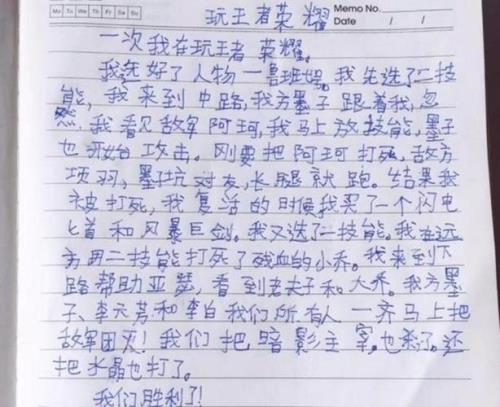 Mo Tu We Th Fr Sa Su
Memo No.
玩王者荣耀
Date / /
一次我在玩王者荣耀。
我选好了人物一鲁班号。我先选了二技
能，我来到中路，我方墨子跟着我，忽
然，我看见敌军阿珂，我马上放技能，墨子
也开始攻击。刚要把阿珂打死，敌方
项羽，坑对友，长腿就跑。结果我
被打死，我复活的时候我买了一个闪电
匕首和风暴巨剑。我又选了一技能。我在远
方用二技能打死了残血的小乔。我来到下
路帮助亚瑟，看到老夫子和大乔。我方墨
子、李元芳和李白我们所有人一齐马上把
敌军团灭！我们把暗影主宰，也杀了。还
把水晶也打了。
我们胜利了！